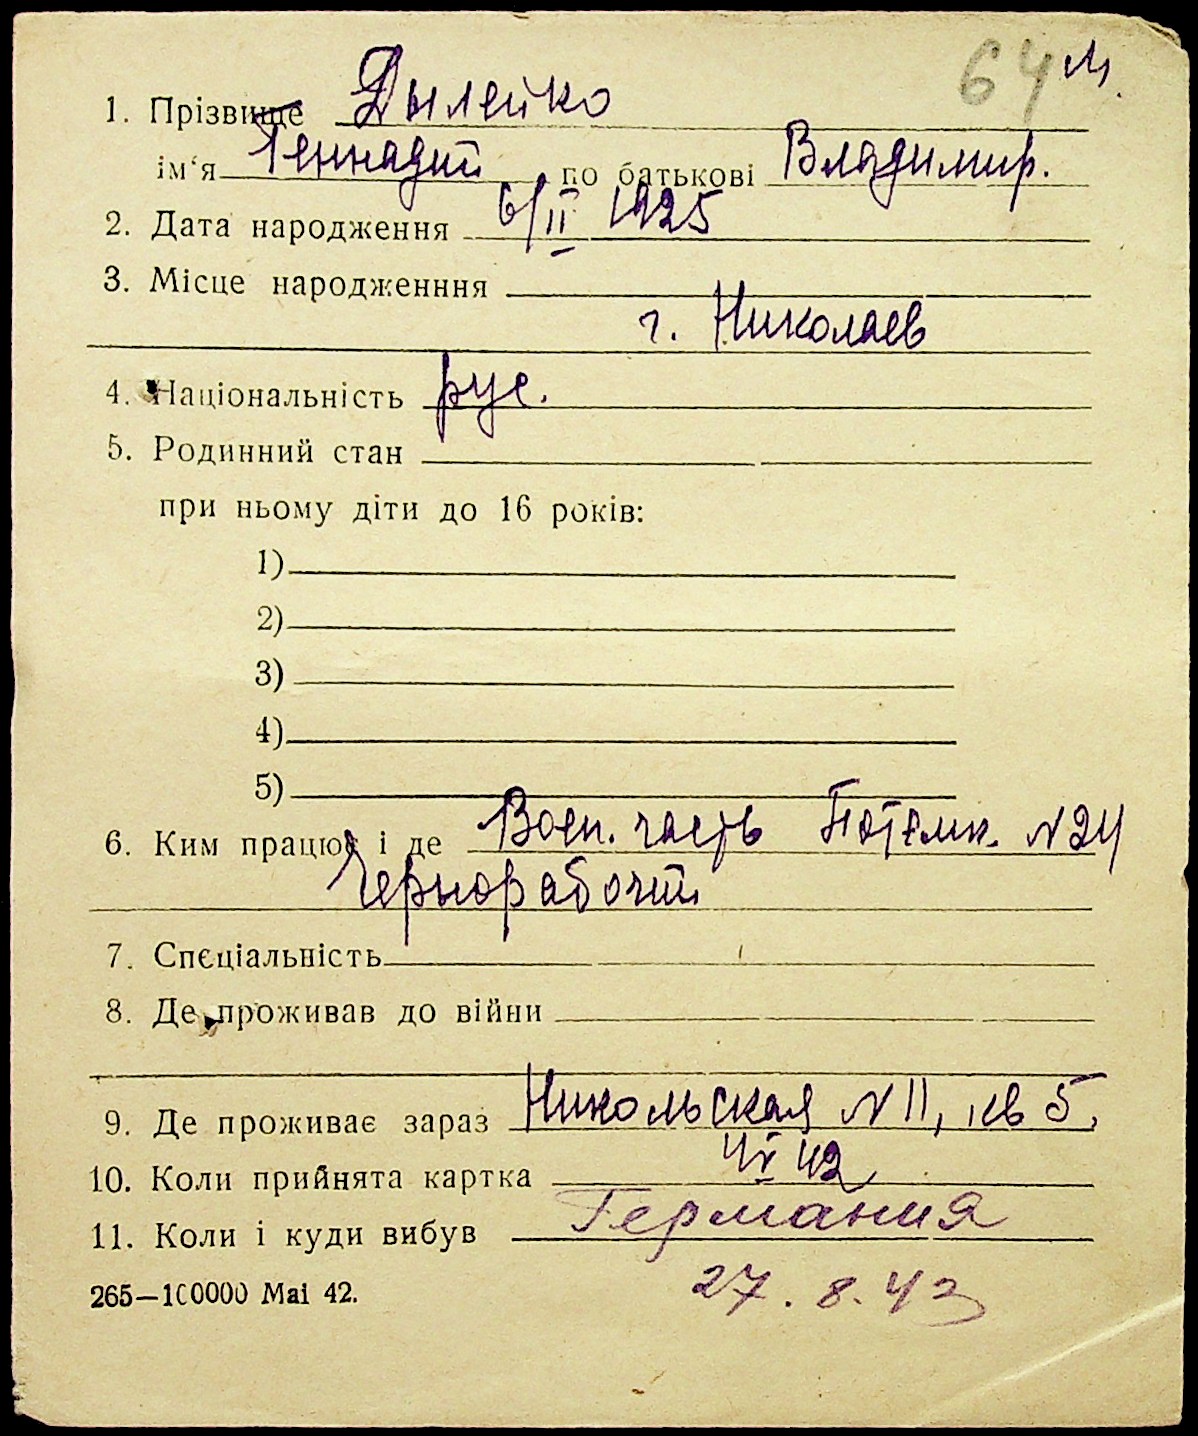 64 м.
1. Прізвище Дылейко
ім‘я Геннадий по батькові Владимир.
2. Дата народження 6/II 1925
3. Місце народженння
г. Николаев
4. Національність рус.
5. Родинний стан
при ньому діти до 16 років:
1)
2)
3)
4)
5)
6. Ким працює і де Воен. часть Потемк. №24
Чернорабочий
7. Спєціальність
8. Де проживав до війни
9. Де проживає зараз Никольская №11, кв 5.
10. Коли прийнята картка 4/V 42
11. Коли і куди вибув Германия
265—100000 Mai 42. 27.8.42